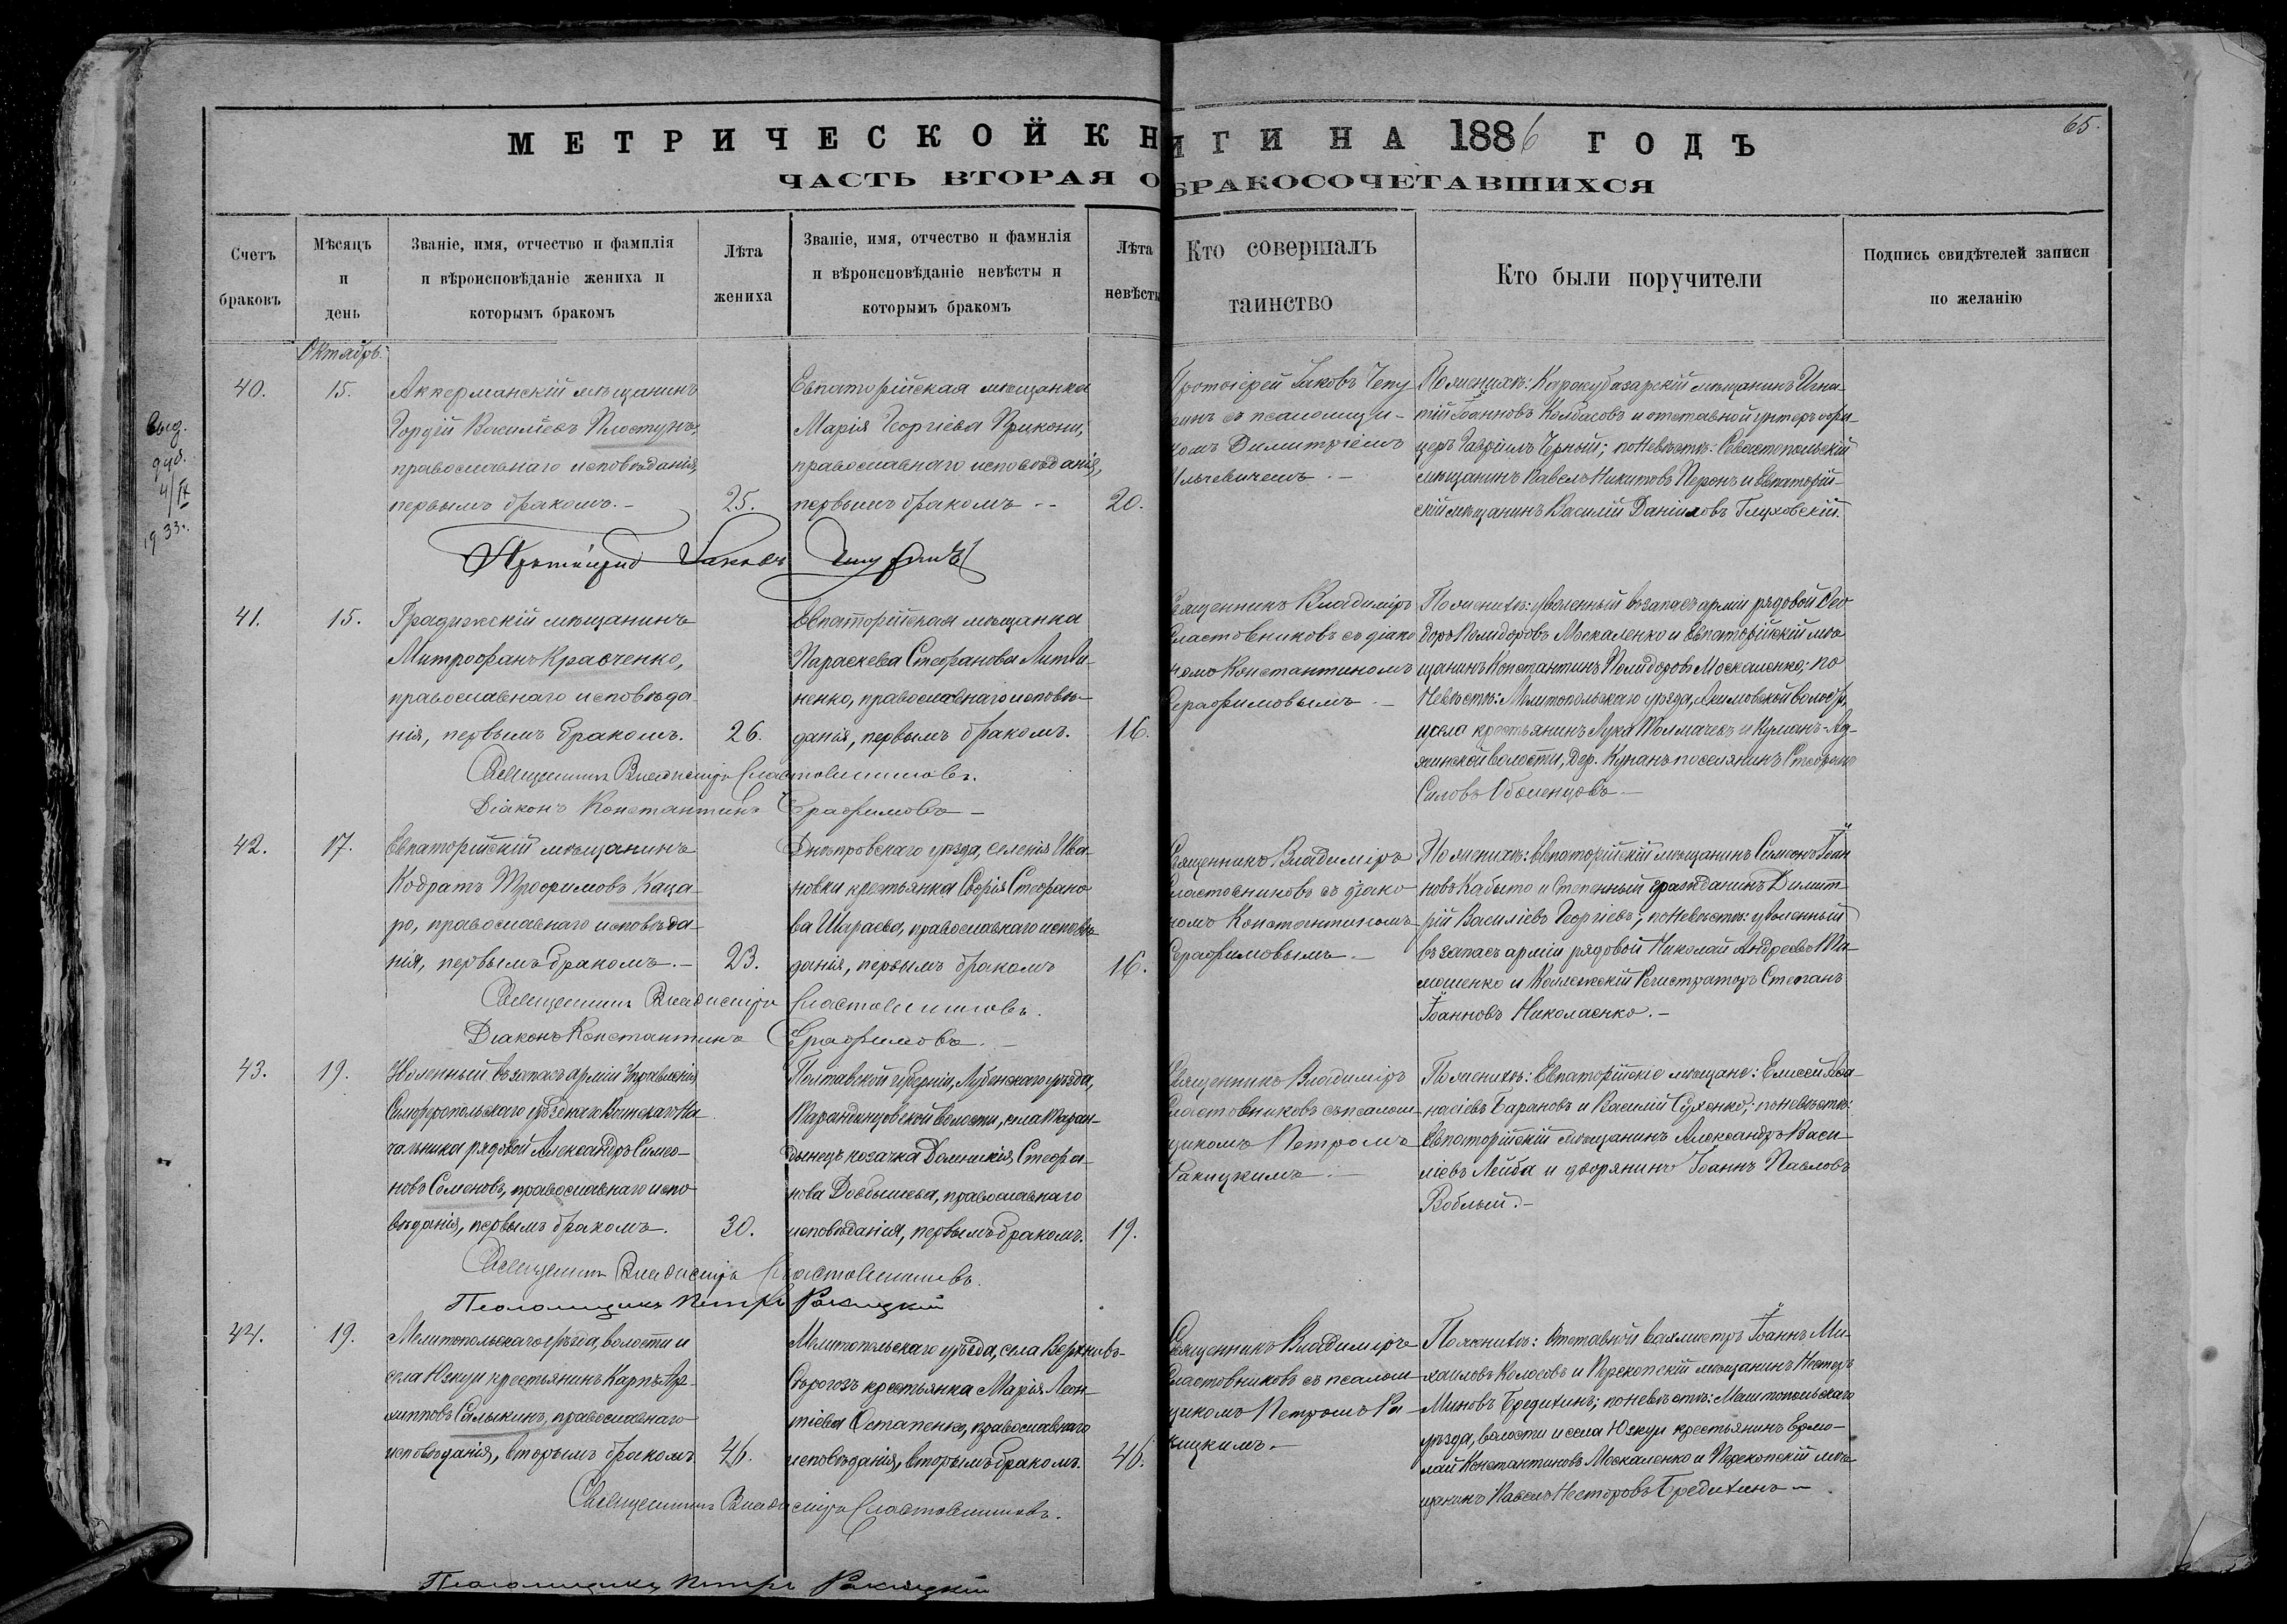 МЕТРИЧЕСКОЙ КНИГИ НА 1886 ГОДЪ
65.
ЧАСТЬ ВТОРАЯ О БРАКОСОЧЕТАВШИХСЯ
Счетъ
браковъ
Мѣсяцъ
и
день
Званіе, имя, отчество и фамилія
и вѣроисповѣданіе жениха и
которымъ бракомъ
Лѣта
жениха
Званіе, имя, отчество и фамилія
и вѣроисповѣданіе невѣсты и
которымъ бракомъ
Лѣта
невѣсты
Кто совершалъ
таинство
Кто были поручители
Подпись свидѣтелей записи
по желанію
Октябрь.
40.
15.
Аккерманскій мѣщанинъ
Гордій Василіевъ Пластунъ,
православнаго исповѣданія,
первымъ бракомъ. -
25.
Евпаторійская мѣщанка
Марія Георгіева Прикони,
православнаго исповѣданія,
первымъ бракомъ --
20.
Протоіерей Іаковъ Чепу
ринъ съ псаломщи-
комъ Димитріемъ
Ильчевичемъ. -
По женихѣ: Карасубазарскій мѣщанинъ Игна-
тій Іоанновъ Колбасовъ и отставной унтеръ офи-
церъ Гавріилъ Черный; по невѣстѣ: Севастопольскій
мѣщанинъ Павелъ Никитовъ Перонъ и Евпаторій-
скій мѣщанинъ Василій Даніиловъ Глуховскій.
Протоіерей Іаковъ Чепуринъ
Выд.
4/IX
1933.
41.
15.
Градижскій мѣщанинъ
Митрофанъ Красченко,
православнаго исповѣда-
нія, первымъ бракомъ.
26.
Евпаторійская мѣщанка
Параскева Стефанова Литви-
ненко, православнаго исповѣ-
данія, первымъ бракомъ.
16.
Священникъ Владиміръ
Сластовниковъ съ діако
номъ Константиномъ
Серафимовымъ. -
По женихѣ: уволенный въ запасъ арміи рядовой Ѳео
доръ Полидоровъ Москаленко и Евпаторійскій мѣ
щанинъ Константинъ Полидоровъ Москаленко; по
невѣстѣ: Мелитопольскаго уѣзда, Акимовской волости,
и села крестьянинъ Лука Толмачевъ и
жинской волости, дер. поселянинъ Стефанъ
Силовъ
Священникъ Владиміръ Сластовниковъ.
Діаконъ Константинъ Серафимовъ -
42.
17.
Евпаторійскій мѣщанинъ
Кодратъ Трофимовъ Каца-
ро, православнаго исповѣда-
нія, первымъ бракомъ. -
23.
Днѣпровскаго уѣзда, селенія Ива-
новки крестьянка Софія Стефано
ва Шараева, православнаго исповѣ-
данія, первымъ бракомъ
16.
Священникъ Владиміръ
Сластовниковъ съ діако
номъ Константиномъ
Серафимовымъ. -
По женихѣ: Евпаторійскій мѣщанинъ Симеонъ Іоан
новъ Кабыто и Степенный гражданинъ Димит-
рій Василіевъ Георгіевъ; по невѣстѣ: уволенный
въ запасъ арміи рядовой Николай Андреевъ Ти-
мошенко и Коллежскій Регистраторъ Степанъ
Іоанновъ Николаенко. -
Священникъ Владиміръ Сластовниковъ.
Діаконъ Константинъ Серафимовъ. -
43.
19.
Уволенный въ запасъ арміи Управленія
Симферопольскаго уѣзднаго Воинскаго На
чальника рядовой Александръ Симео-
новъ Семеновъ, православнаго испо
вѣданія, первымъ бракомъ.
30.
Полтавской губерніи, Лубенскаго уѣзда,
Тарандинцовской волости, села Таран-
дынецъ козачка Домникія Стефа-
нова Довбышева, православнаго
исповѣданія, первымъ бракомъ.
19.
Священникъ Владиміръ
Сластовниковъ съ псалом-
щикомъ Петромъ
Ракицкимъ. -
По женихѣ: Евпаторійскіе мѣщане: Елисей Аѳа-
насіевъ Барановъ и Василій Сухенко; по невѣстѣ:
Евпаторійскій мѣщанинъ Александръ Васи-
ліевъ Лейба и дворянинъ Іоаннъ Павловъ
Воблый. -
Священникъ Владиміръ Сластовниковъ.
Псаломщикъ Петръ Ракицкій
44.
19.
Мелитопольскаго уѣзда, волости и
села Юзкуи крестьянинъ Карпъ Ар-
хипповъ Салыкинъ, православнаго
исповѣданія, вторымъ бракомъ
46.
Мелитопольскаго уѣзда, села Верхнихъ-
Сѣрогозъ крестьянка Марія Леон-
тіева Остапенко, православнаго
исповѣданія, вторымъ бракомъ.
46.
Священникъ Владиміръ
Сластовниковъ съ псалом
щикомъ Петромъ Ра-
кицкимъ. -
По женихѣ: Отставной вахмистръ Іоаннъ Ми-
хаиловъ Колосовъ и Перекопскій мѣщанинъ Несторъ
Миновъ Бредихинъ; по невѣстѣ: Мелитопольскаго
уѣзда, волости и села Юзкуи крестьянинъ Ермо-
лай Константиновъ Москаленко и Перекопскій мѣ-
щанинъ Павелъ Несторовъ Бредихинъ -
Священникъ Владиміръ Сластовниковъ.
Псаломщикъ Петръ Ракицкій